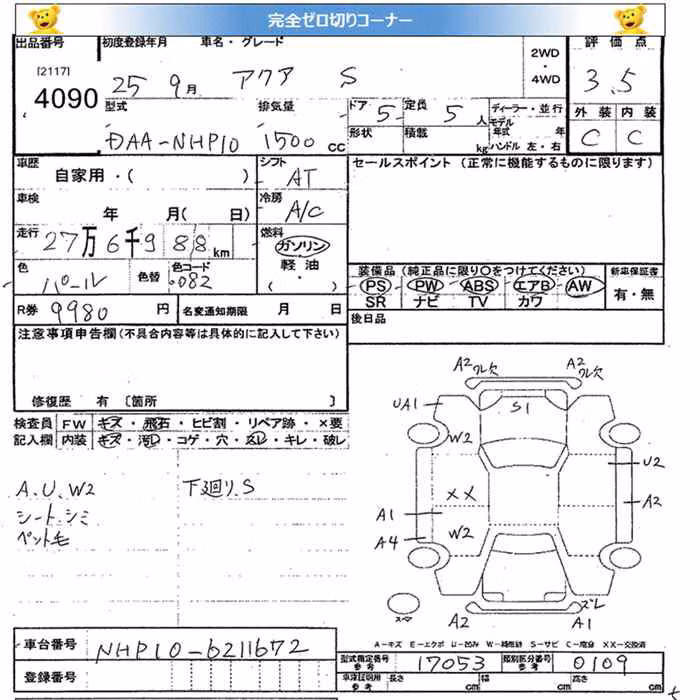 完全ゼロ切りコーナー
出品番号 初度登録年月 車名・グレード 2WD・4WD 評価点
[2117] 4090 25 9月 アクア S 3.5
型式 排気量 ドア 5 定員 5人 ディーラー・並行 外装 内装
形状 積載 kg モデル年式 年
DAA-NHP10 1500cc ハンドル 左・右 C C
車歴 シフト セールスポイント (正常に機能するものに限ります)
自家用・( ) AT
車検 冷房
年 月( 日) A/C
走行 燃料
27万6千988km ガソリン
軽油
・( )
色 色替 色コード 装備品 (純正品に限り○をつけてください) 新車保証書
パール 082 PS PW ABS エアB AW 有・無
SR ナビ TV カワ
R券 9980円 名変通知期限 月 日 後日品
注意事項申告欄(不具合内容等は具体的に記入して下さい)
修復歴 有 〔箇所 〕
検査員 FW キズ・飛石・ヒビ割・リペア跡・×要
記入欄 内装 キズ・汚レ・コゲ・穴・スレ・キレ・破レ
A.U.W2 下廻り.S
シート.シミ
ペット毛
A2 ツル欠 A2 ツル欠
UA1 S1
W2 U2
XX A2
A1
A4 W2
ズレ
スペア A2 A1
A-キズ E-エクボ U-凹み W-補修跡 S-サビ C-腐食 XX-交換済
車台番号 NHP10-6211672
型式指定番号 参考 17053 類別区分番号 参考 0109
登録番号 車庫証明用 参考 長さ cm 幅 cm 高さ cm